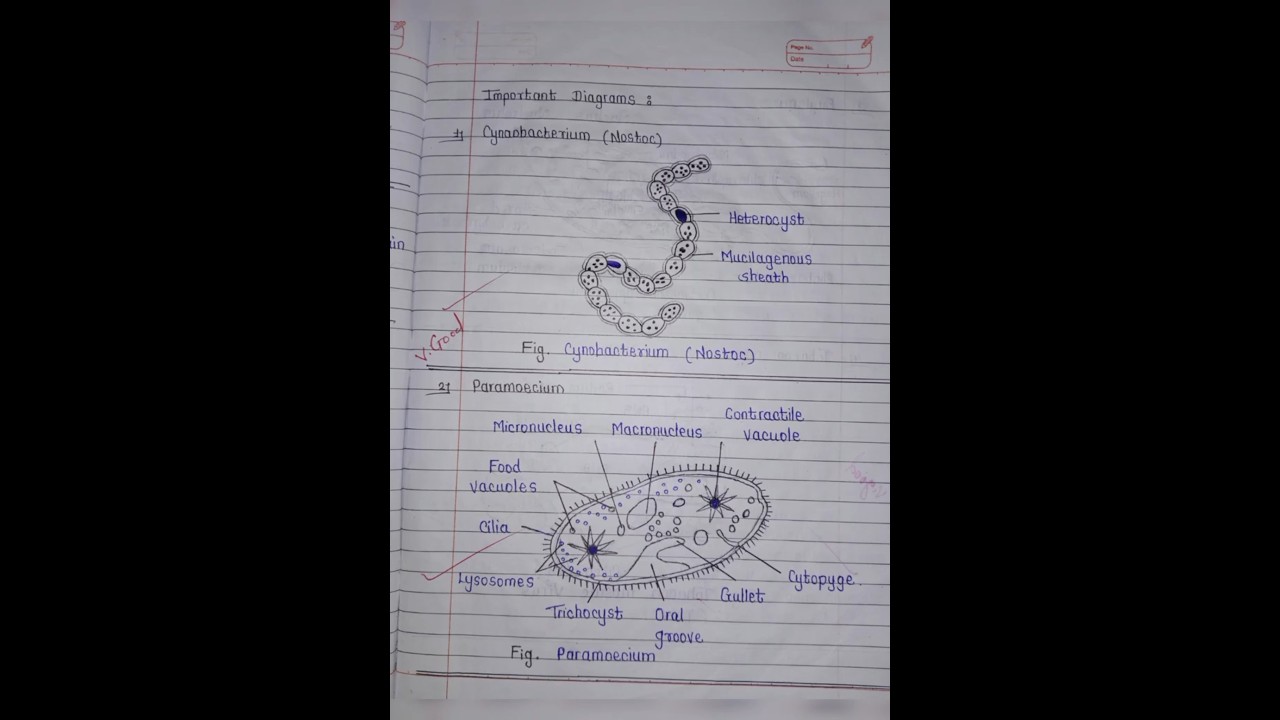 Page No.
Date
Important Diagrams :
1) Cynaobacterium (Nostoc)
Heterocyst
Mucilagenous
sheath
in
V. Good
Fig. Cynobacterium (Nostoc)
2) Paramoecium
Contractile
vacuole
Micronucleus
Macronucleus
Food
vacuoles
Cilia
Lysosomes
Trichocyst
Oral
groove
Gullet
Cytopyge
Fig. Paramoecium